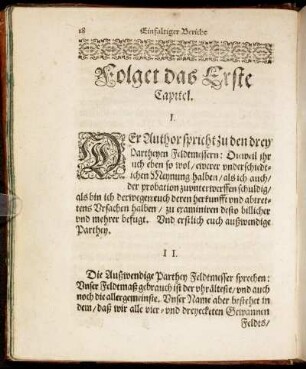 18 Einfaltiger Bericht
Folget das Erste
Capitel.
I.
DEr Author spricht zu den drey
Partheyen Feldtmessern: Dieweil ihr
euch eben so wol / ewerer vnderschiedt-
lichen Meynung halben / als ich auch /
der probation zu vnterwerffen schuldig /
als bin ich derwegen euch deren herkunfft vnd abtret-
tens Vrsachen halben / zu examiniren desto billicher
vnd mehrer befugt. Vnd erstlich euch außwendige
Parthey.
II.
Die Außwendige Parthey Feldtmesser sprechen:
Vnser Feldtmaß gebrauch ist der vhrälteste / vnd auch
noch die allergemeinste. Vnser Name aber bestehet in
dem / daß wir alle vier- vnd dreyecketen Gewannen
Feldts /